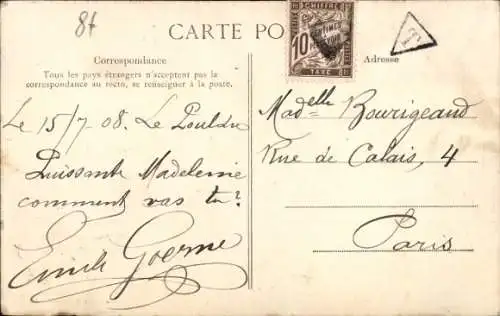 8f
CARTE PO
10
CENTIMES
À PERCEVOIR
CHIFFRE
TAXE
T
Correspondance
Tous les pays étrangers n'acceptent pas la
correspondance au recto, se renseigner à la poste.
Le 15/7-08. Le Pouldu
Puissante Madeleine
comment vas tu?
Emile Goerne
Adresse
Madelle Bourigeaud
Rue de Calais, 4
Paris